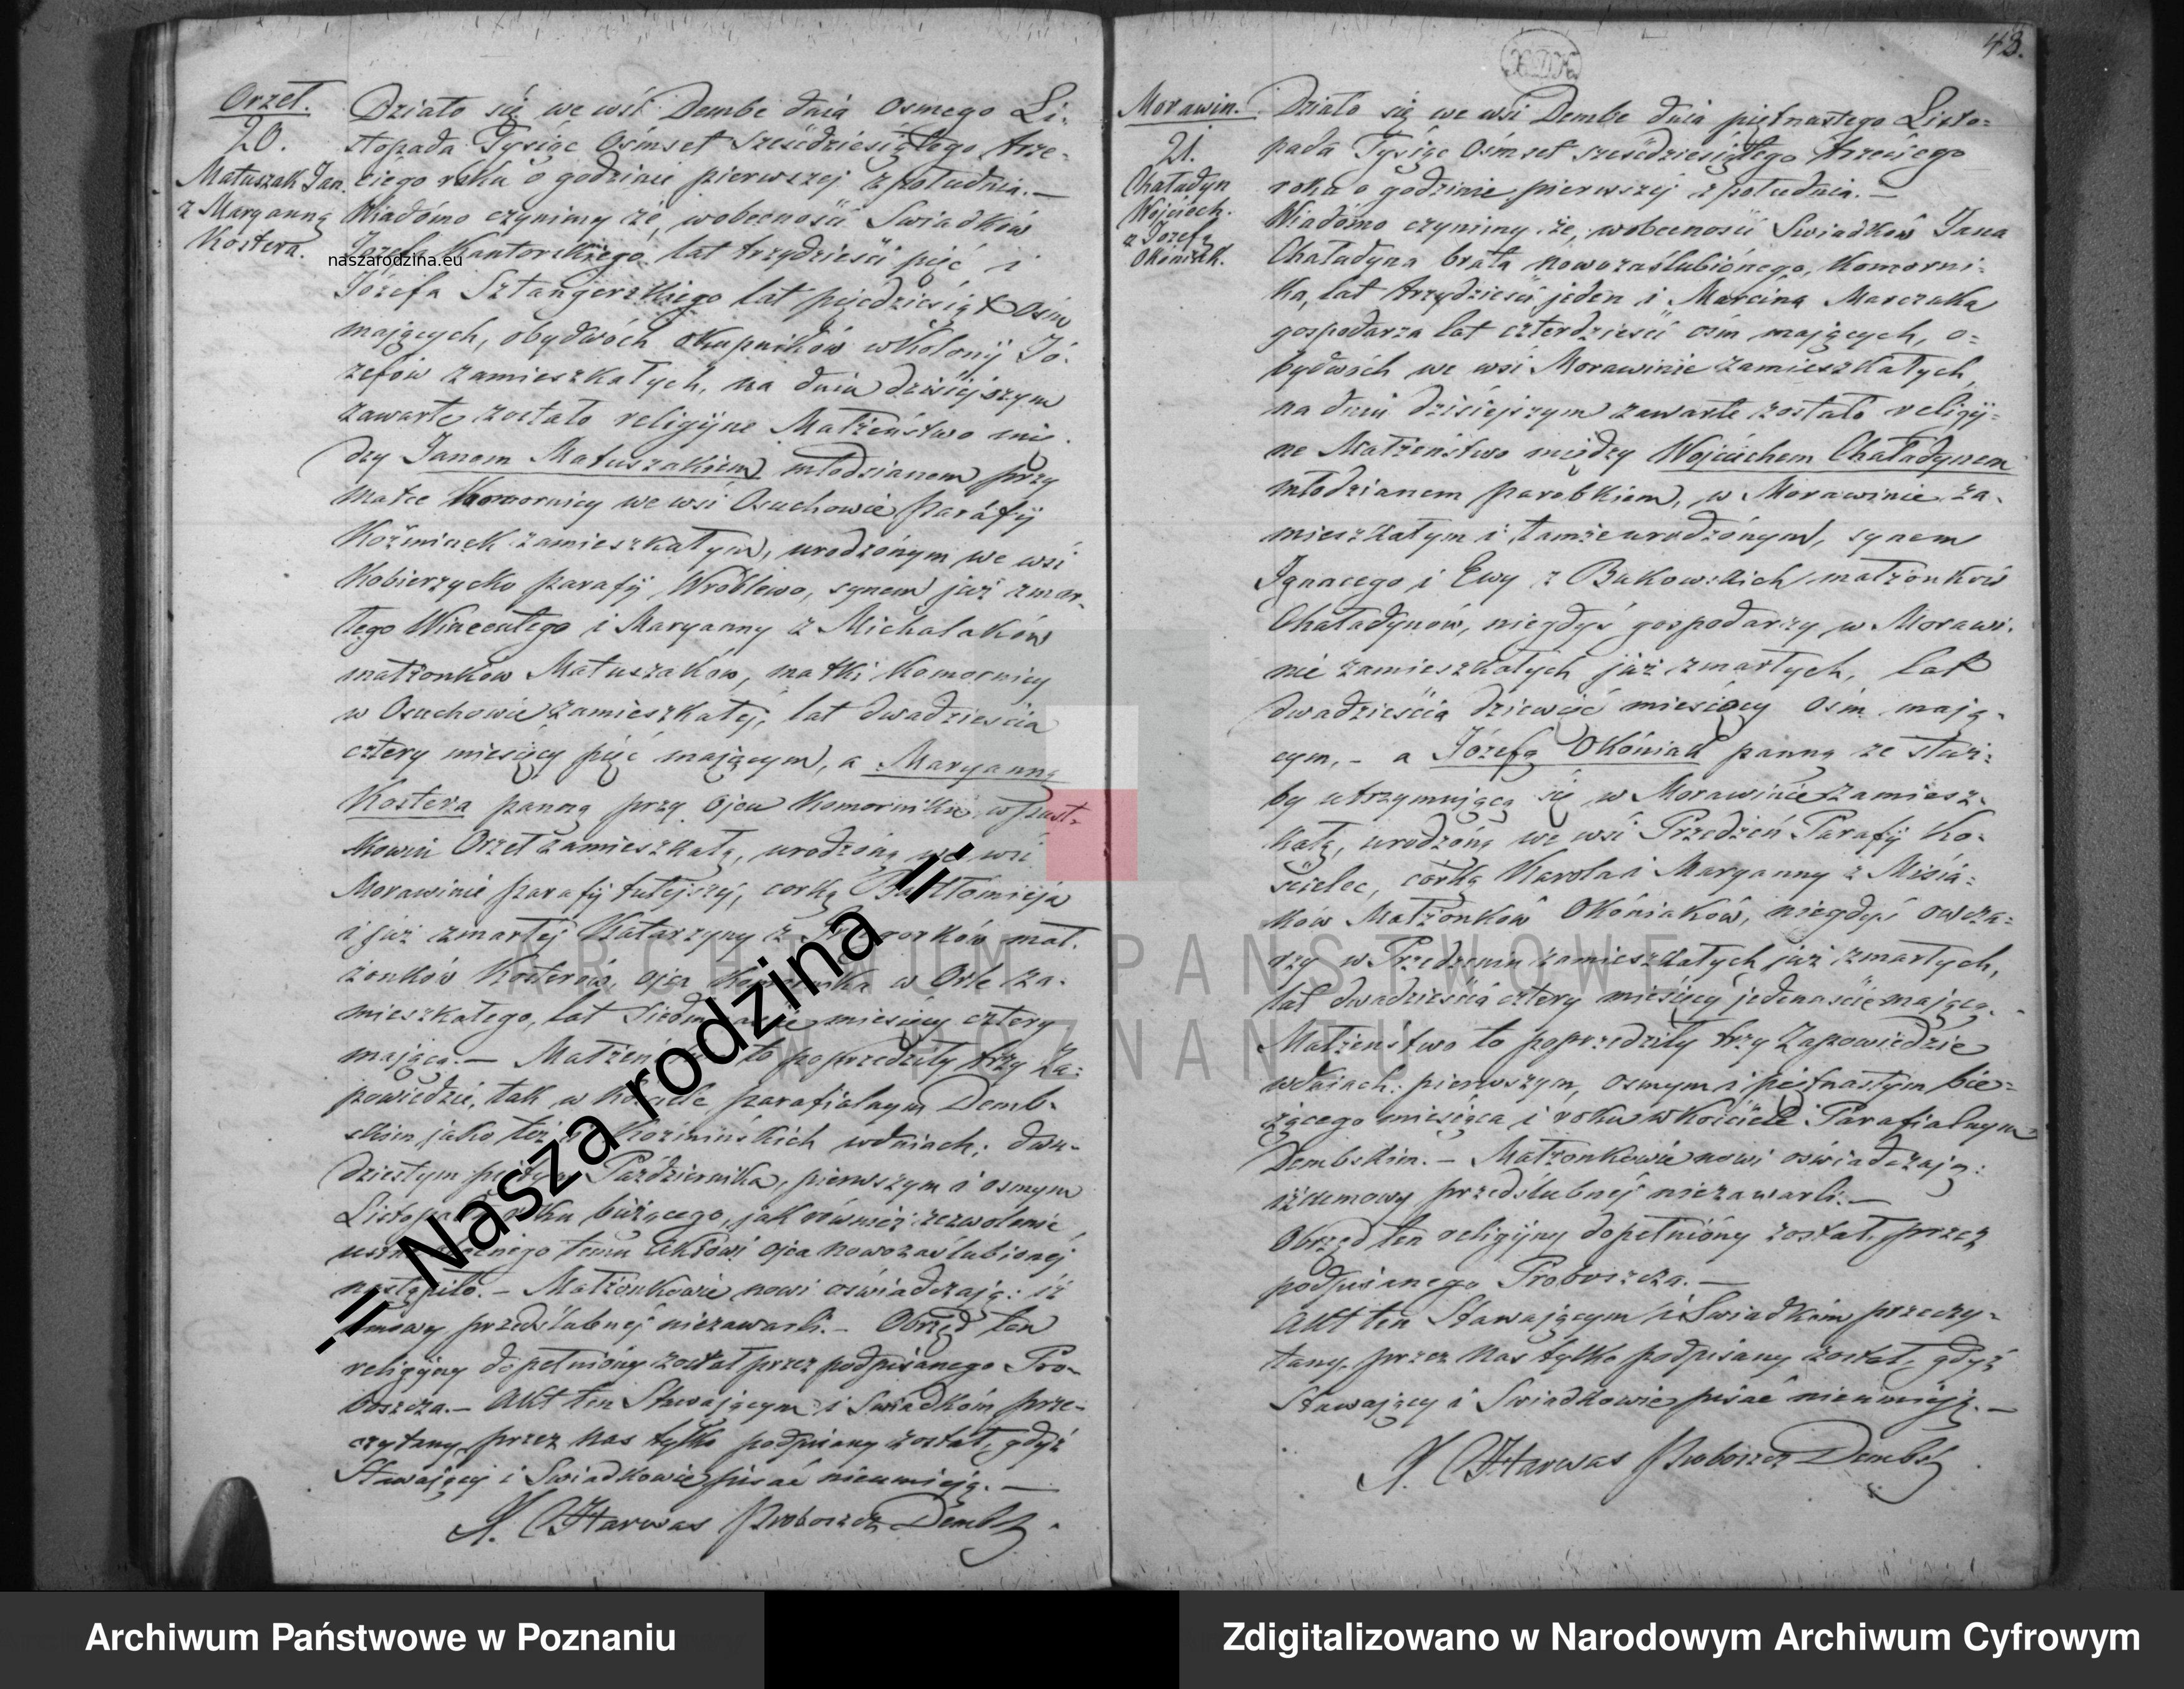 43.
Orzeł.
20.
Matuszak Jan
z Maryanną
Kostera.
Działo się we wsi Dembe dnia osmego Li-
stopada Tysiąc Ośmset sześćdziesiątego trze-
ciego roku o godzinie pierwszej z południa. —
Wiadomo czynimy że, wobecności Swiadków
Józefa Kantorskiego lat trzydzieści pięć i
Józefa Sztangerskiego lat pięćdziesiąt ośm
mających, obydwóch okupników w Kolonji Jó-
zefów zamieszkałych, na dniu dzisiejszym
zawarte zostało religijne Małżeństwo mię-
dzy Janem Matuszakiem młodzianem przy
matce Komornicy we wsi Osuchowie parafji
Koźminek zamieszkałym, urodzonym we wsi
Kobierzycko parafji Wróblewo, synem już zmar-
łego Wincentego i Maryanny z Michalaków
małżonków Matuszaków, matki Komornicy
w Osuchowie zamieszkałej, lat dwadzieścia
cztery miesięcy pięć mającym, a Maryanną
Kostera panną przy ojcu Komorniku w pust-
kowiu Orzeł zamieszkałą, urodzoną we wsi
Morawinie parafji tutejszej, corką Bartłomieja
i już zmarłej Katarzyny z mał-
żonków Kosterów, ojca Komornika w Orle za-
mieszkałego, lat miesięcy cztery
mającą. — Małżeństwo to poprzedziły trzy Za-
powiedzie, tak w Kościele parafialnym Demb-
skim jako też w Koźmińskich wdniach: dwu-
dziestym piątym Października, pierwszym i osmym
Listopada roku bieżącego, jak również zezwolenie
ustne obecnego temu Aktowi ojca nowozaślubionej
nastąpiło. — Małżonkowie nowi oświadczają: iż
umowy przedślubnej niezawarli. — Obrzęd ten
religijny dopełniony został przez podpisanego Pro-
boszcza. — Akt ten Stawającym i Swiadkom prze-
czytany, przez Nas tylko podpisany został, gdyż
Stawający i Swiadkowie pisać nieumieją. —
X. Harwas Proboszcz Dembsk
Morawin.
21.
Chaładyn
Wojciech.
a Józefą
Okóniak.
Działo się we wsi Dembe dnia piętnastego Listo-
pada Tysiąc Ośmset sześćdziesiątego trzeciego
roku o godzinie pierwszej z południa. —
Wiadomo czynimy że, wobecności Swiadków Jana
Chaładyna brata nowozaślubionego, Komorni-
ka, lat trzydzieści jeden i Marcina Marczaka
gospodarza lat czterdzieści ośm mających, o-
bydwóch we wsi Morawinie zamieszkałych
na dniu dzisiejszym zawarte zostało religij-
ne Małżeństwo między Wojciechem Chaładynem
młodzianem parobkiem, w Morawinie za-
mieszkałym i tamże urodzonym, synem
Ignacego i Ewy z Bukowskich małżonków
Chaładynów, niegdyś gospodarzy w Morawi-
nie zamieszkałych już zmarłych, lat
dwadzieścia dziewięć miesięcy ośm mają-
cym, — a Józefą Okóniak panną ze służ-
by utrzymującą się w Morawinie zamiesz-
kałą, urodzoną we wsi Przedzeń Parafji Ko-
ścielec, córką Karola i Maryanny z Misia-
ków Małżonków Okóniaków, niegdyś owcza-
rzy w Przedzeniu zamieszkałych już zmarłych,
lat dwadzieścia cztery miesięcy jedenaście mającą.
Małżeństwo to poprzedziły trzy Zapowiedzie
wdniach: pierwszym, osmym i piętnastym bie-
żącego miesiąca i roku w Kościele Parafialnym
Dembskim. — Małżonkowie nowi oświadczają:
iż umowy przedślubnej niezawarli. —
Obrzęd ten religijny dopełniony został, przez
podpisanego Proboszcza. —
Akt ten Stawającym i Swiadkom przeczy-
tany, przez Nas tylko podpisany został, gdyż
Stawający i Swiadkowie pisać nieumieją. —
X. Harwas Proboszcz Dembsk
naszarodzina.eu
-= Nasza rodzina =-
ARCHIWUM PAŃSTWOWE
W POZNANIU
Archiwum Państwowe w Poznaniu
Zdigitalizowano w Narodowym Archiwum Cyfrowym